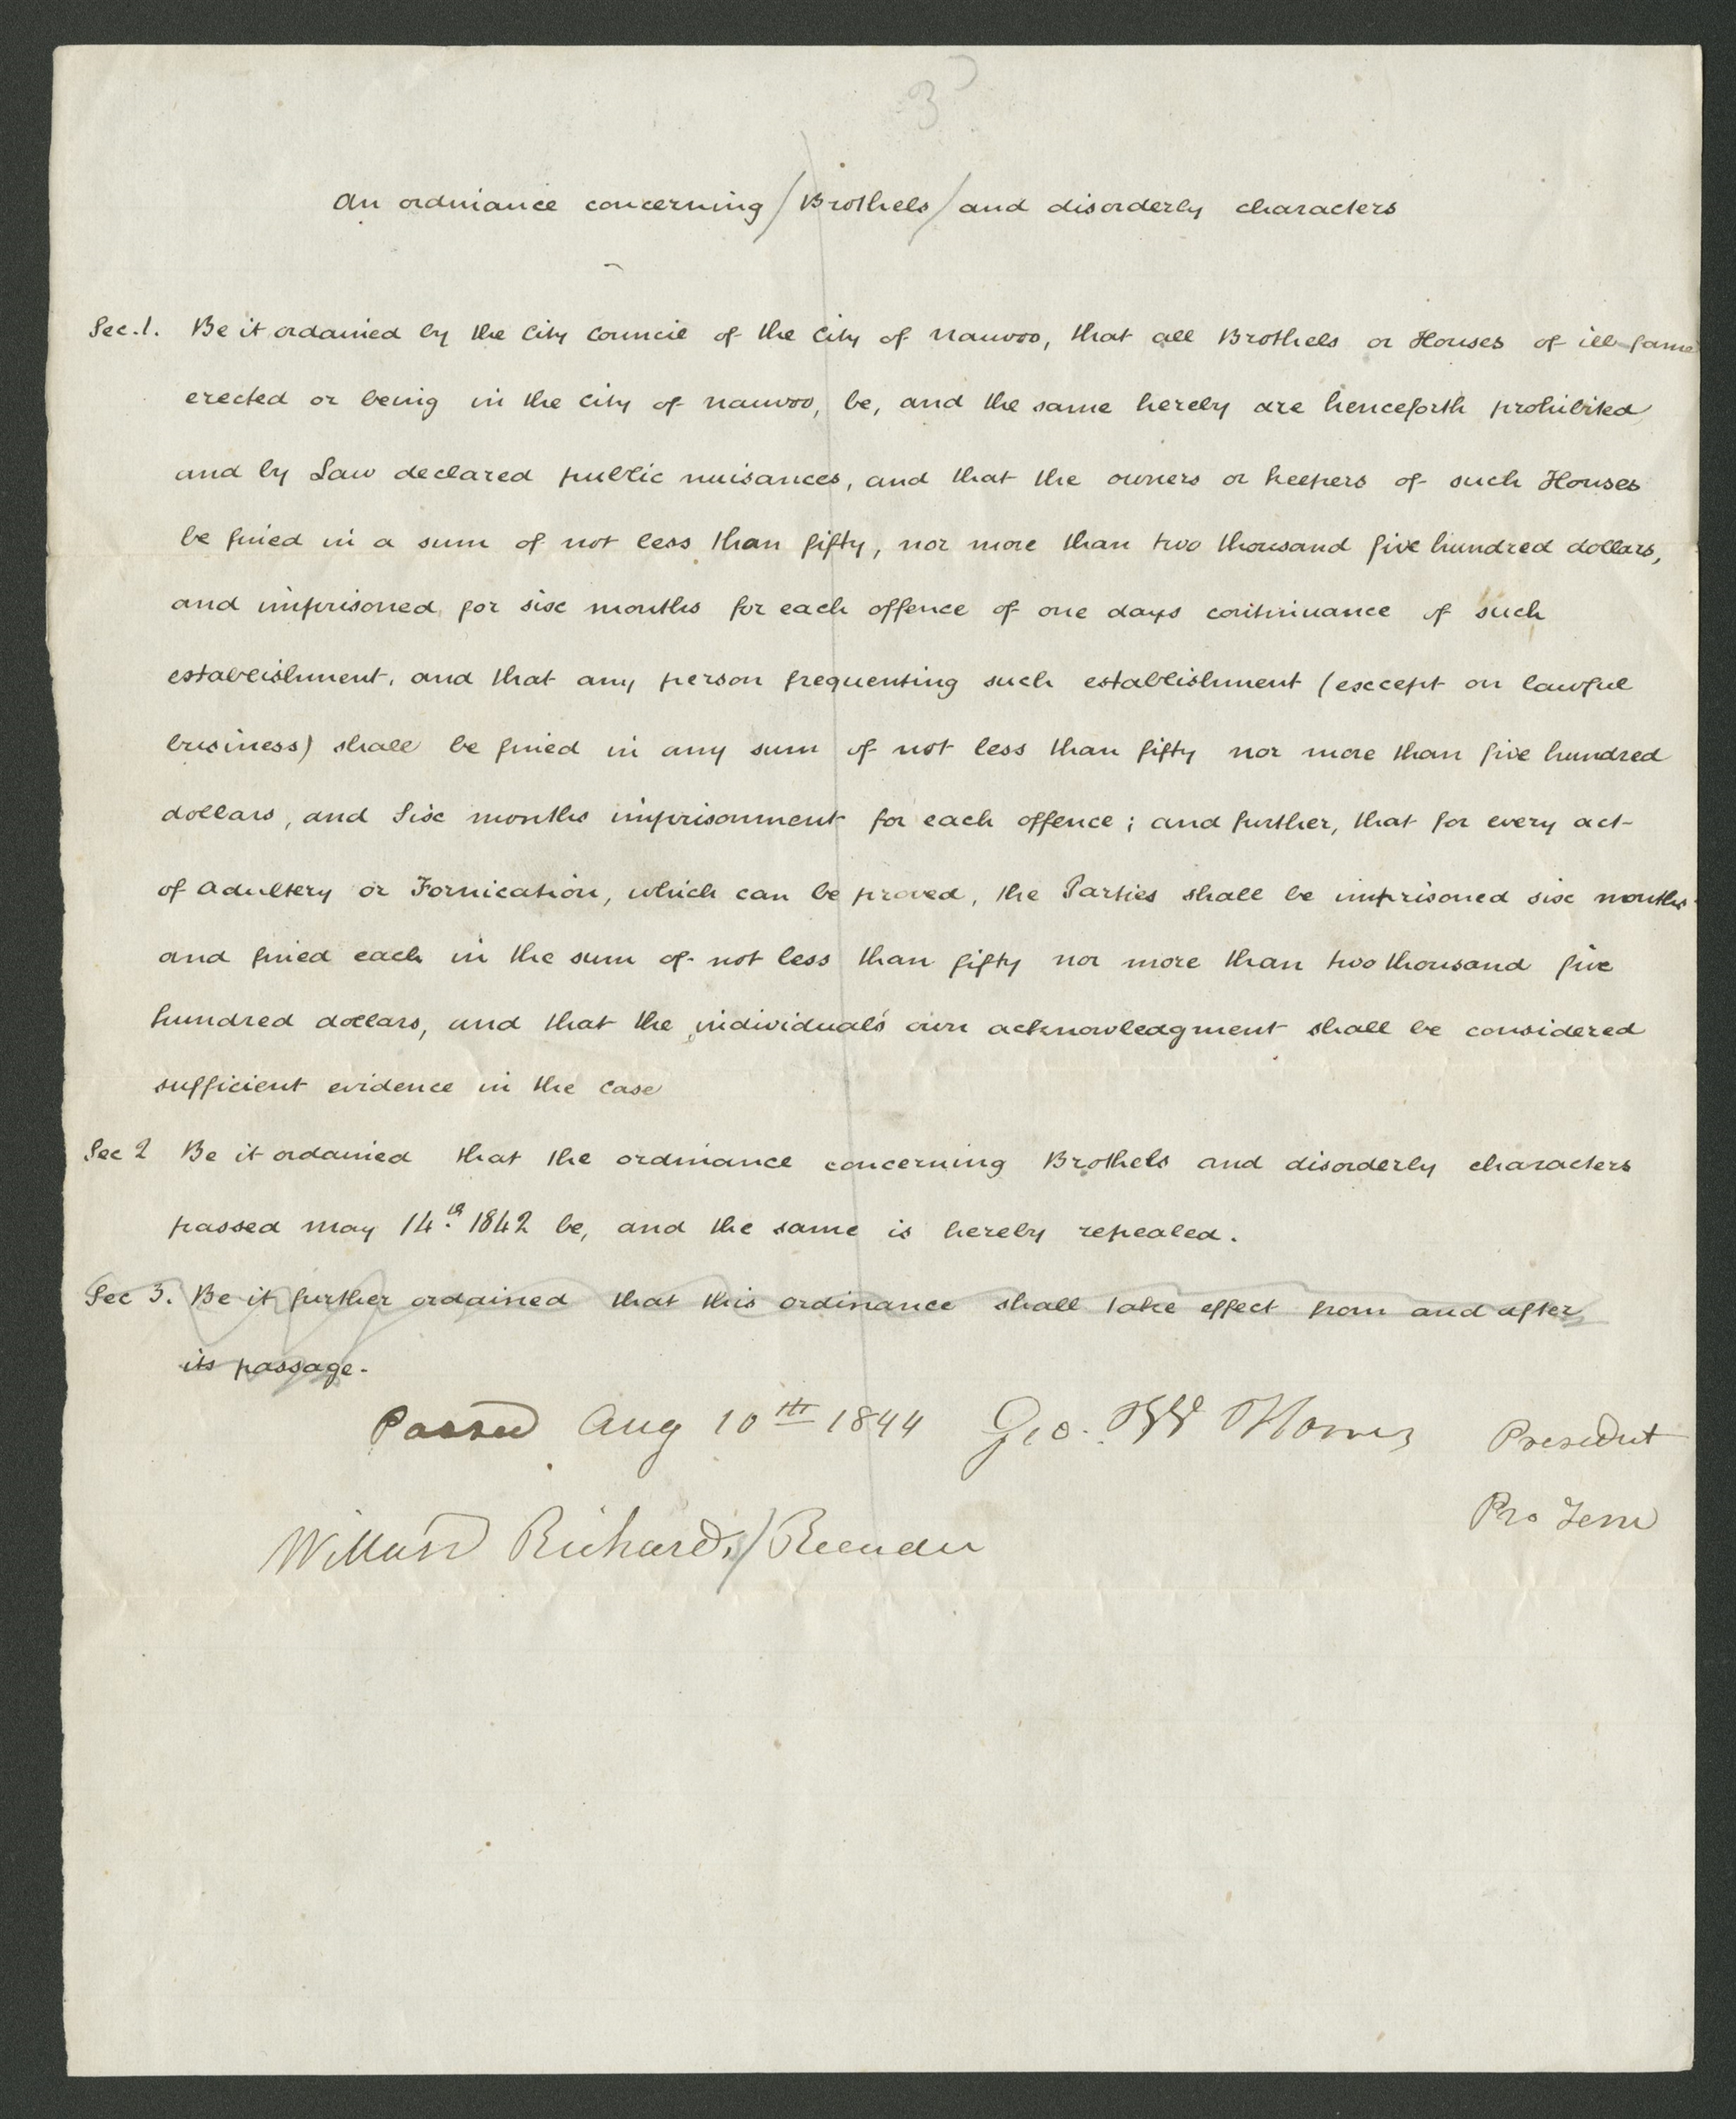 3
An ordinance concerning / Brothels / and disorderly characters
Sec. 1. Be it ordained by the City Council of the City of Nauvoo, that all Brothels or Houses of ill-fame
erected or being in the City of Nauvoo, be, and the same hereby are henceforth prohibited,
and by Law declared public nuisances, and that the owners or keepers of such Houses
be fined in a sum of not less than fifty, nor more than two thousand five hundred dollars,
and imprisoned for six months for each offence of one days continuance of such
establishment, and that any person frequenting such establishment (except on lawful
business) shall be fined in any sum of not less than fifty nor more than five hundred
dollars, and Six months imprisonment for each offence; and further, that for every act
of Adultery or Fornication, which can be proved, the Parties shall be imprisoned six months
and fined each in the sum of not less than fifty nor more than two thousand five
hundred dollars, and that the individual's own acknowledgment shall be considered
sufficient evidence in the case
Sec 2 Be it ordained that the ordinance concerning Brothels and disorderly characters
passed May 14th. 1842 be, and the same is hereby repealed.
Sec 3. Be it further ordained that this ordinance shall take effect from and after
its passage.
Passed Aug 10th 1844 Geo. W Harris President
Pro Tem
Willard Richards, / Recorder